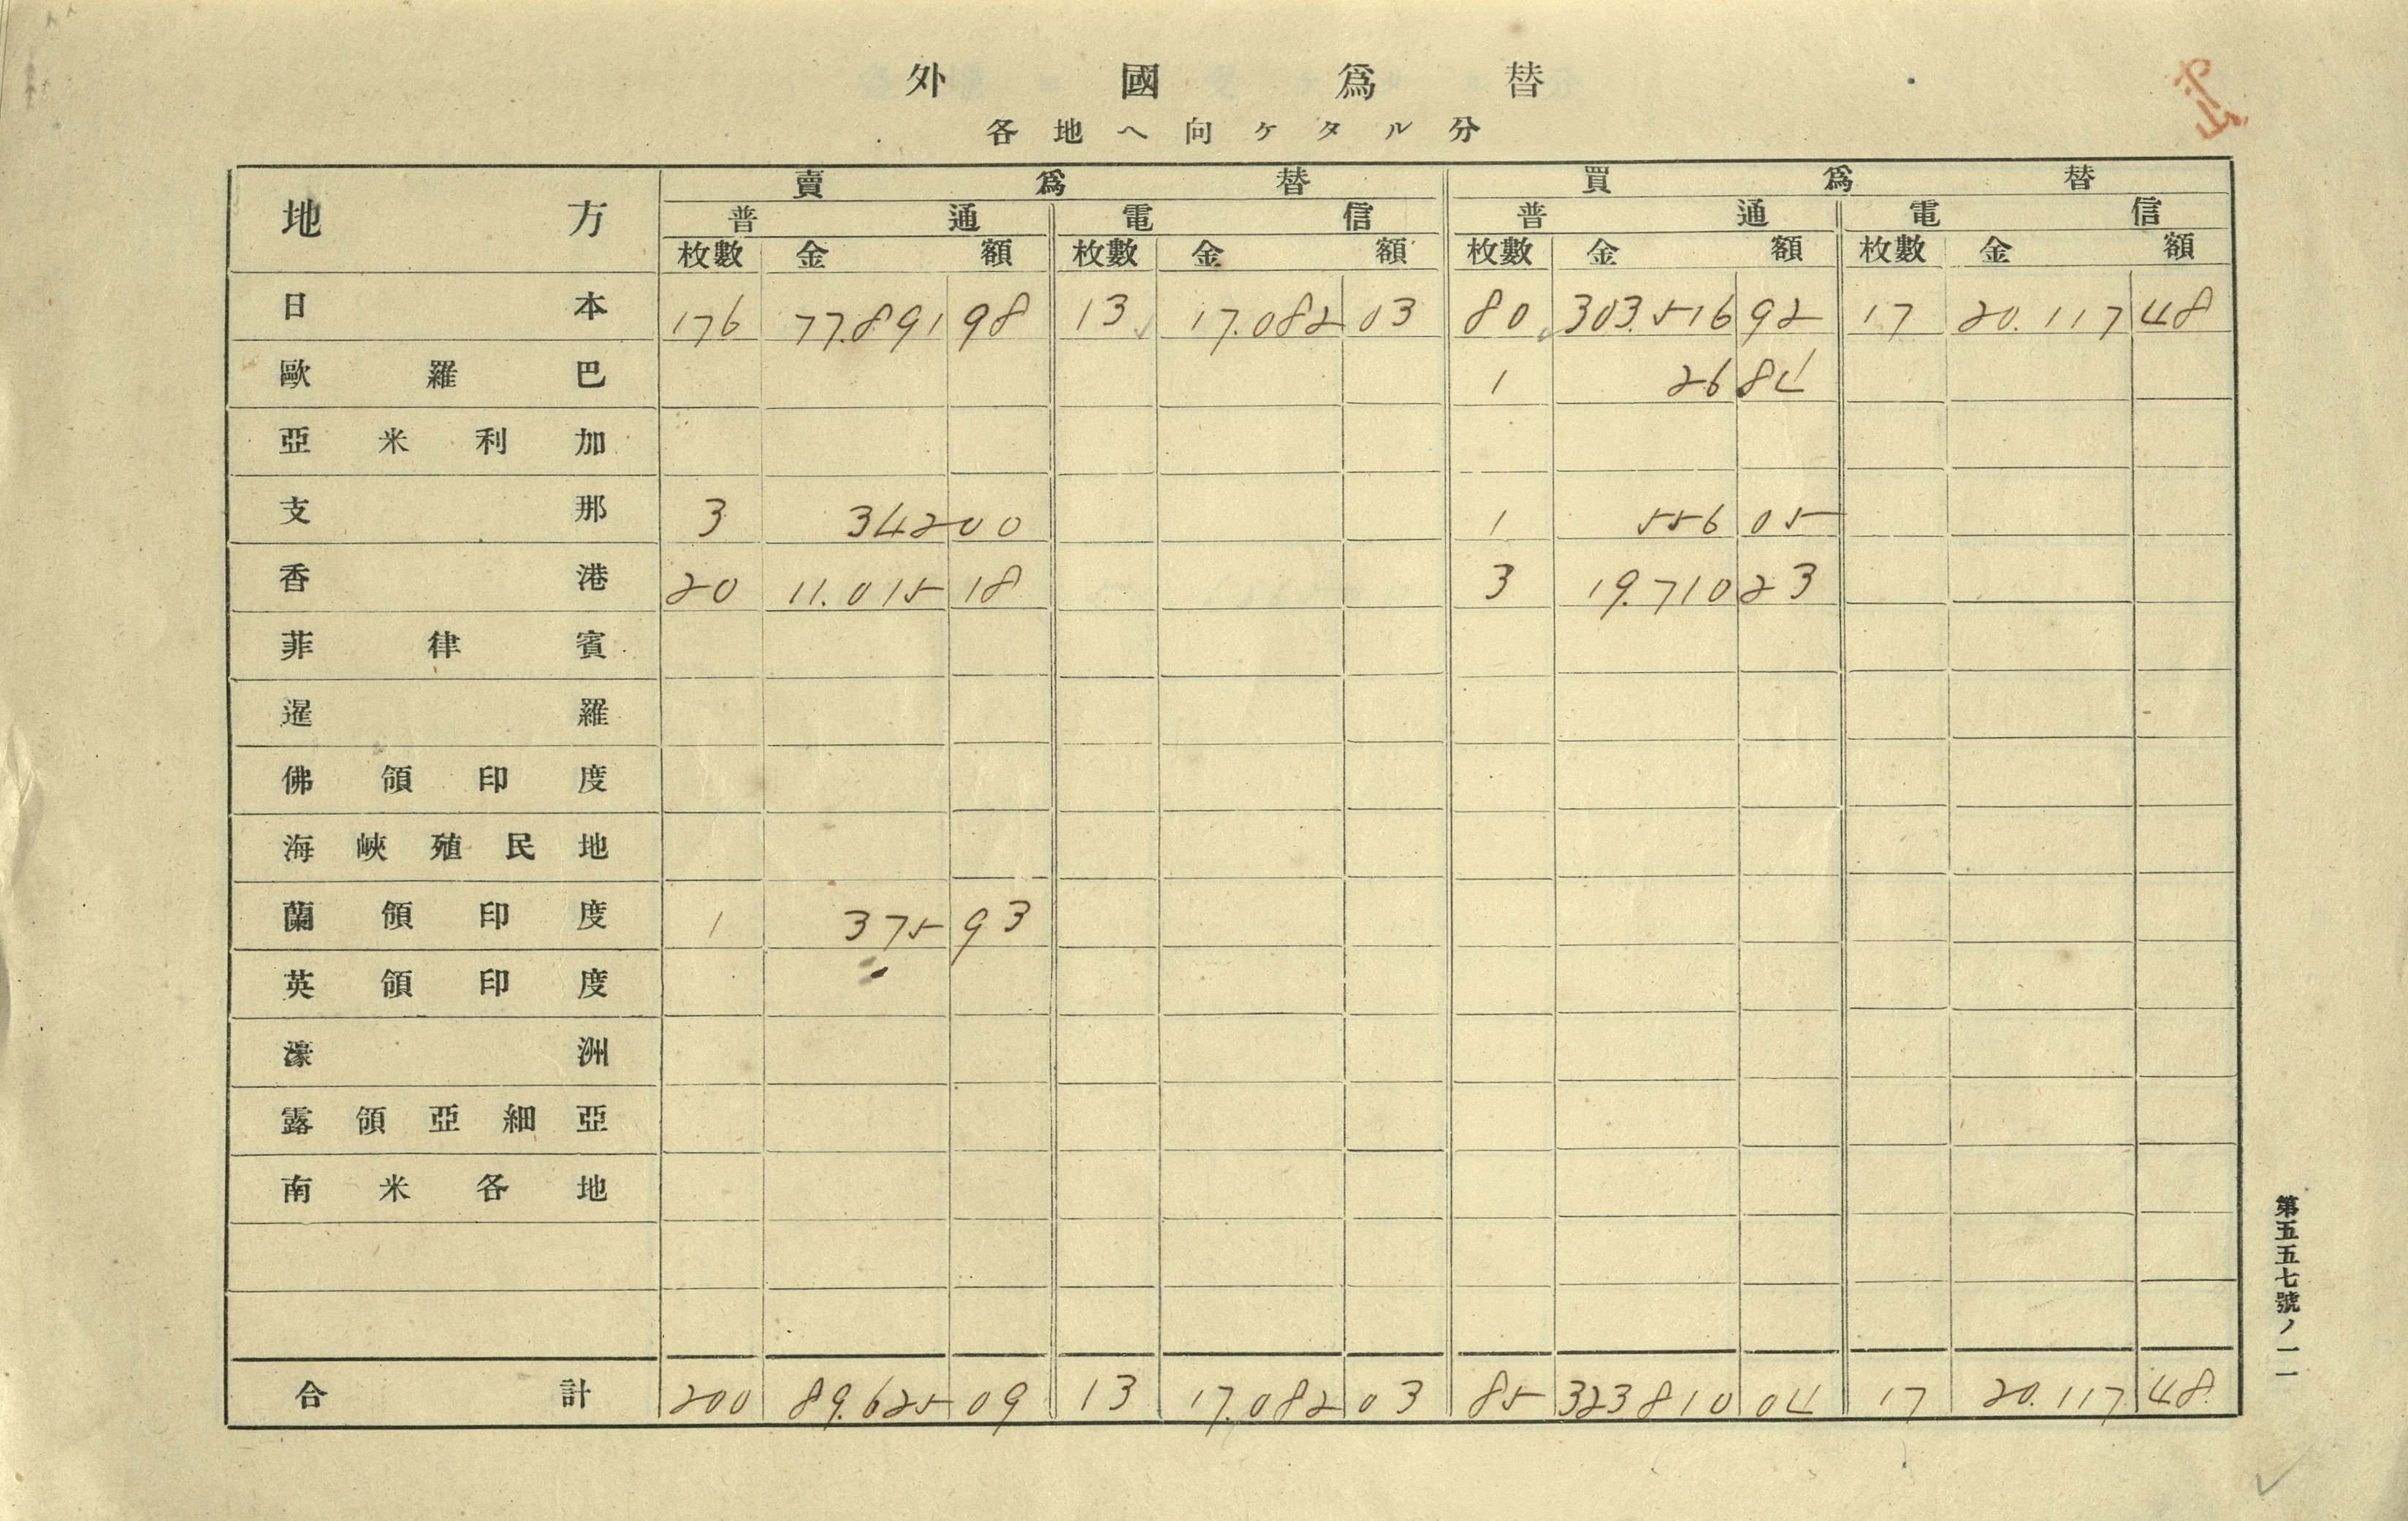 外國爲替
各地ヘ向ケタル分
地方 賣爲替 買爲替
普通 電信 普通 電信
枚數 金額 枚數 金額 枚數 金額 枚數 金額
日本 176 77.891 98 13 17.082 03 80 303.516 92 17 20.117 48
歐羅巴 1 26 84
亞米利加
支那 3 342 00 1 556 05
香港 20 11.015 18 3 19.710 23
菲律賓
暹羅
佛領印度
海峽殖民地
蘭領印度 1 375 93
英領印度
濠洲
露領亞細亞
南米各地
合計 200 89.625 09 13 17.082 03 85 323810 04 17 20.117 48
第五五七號ノ一一